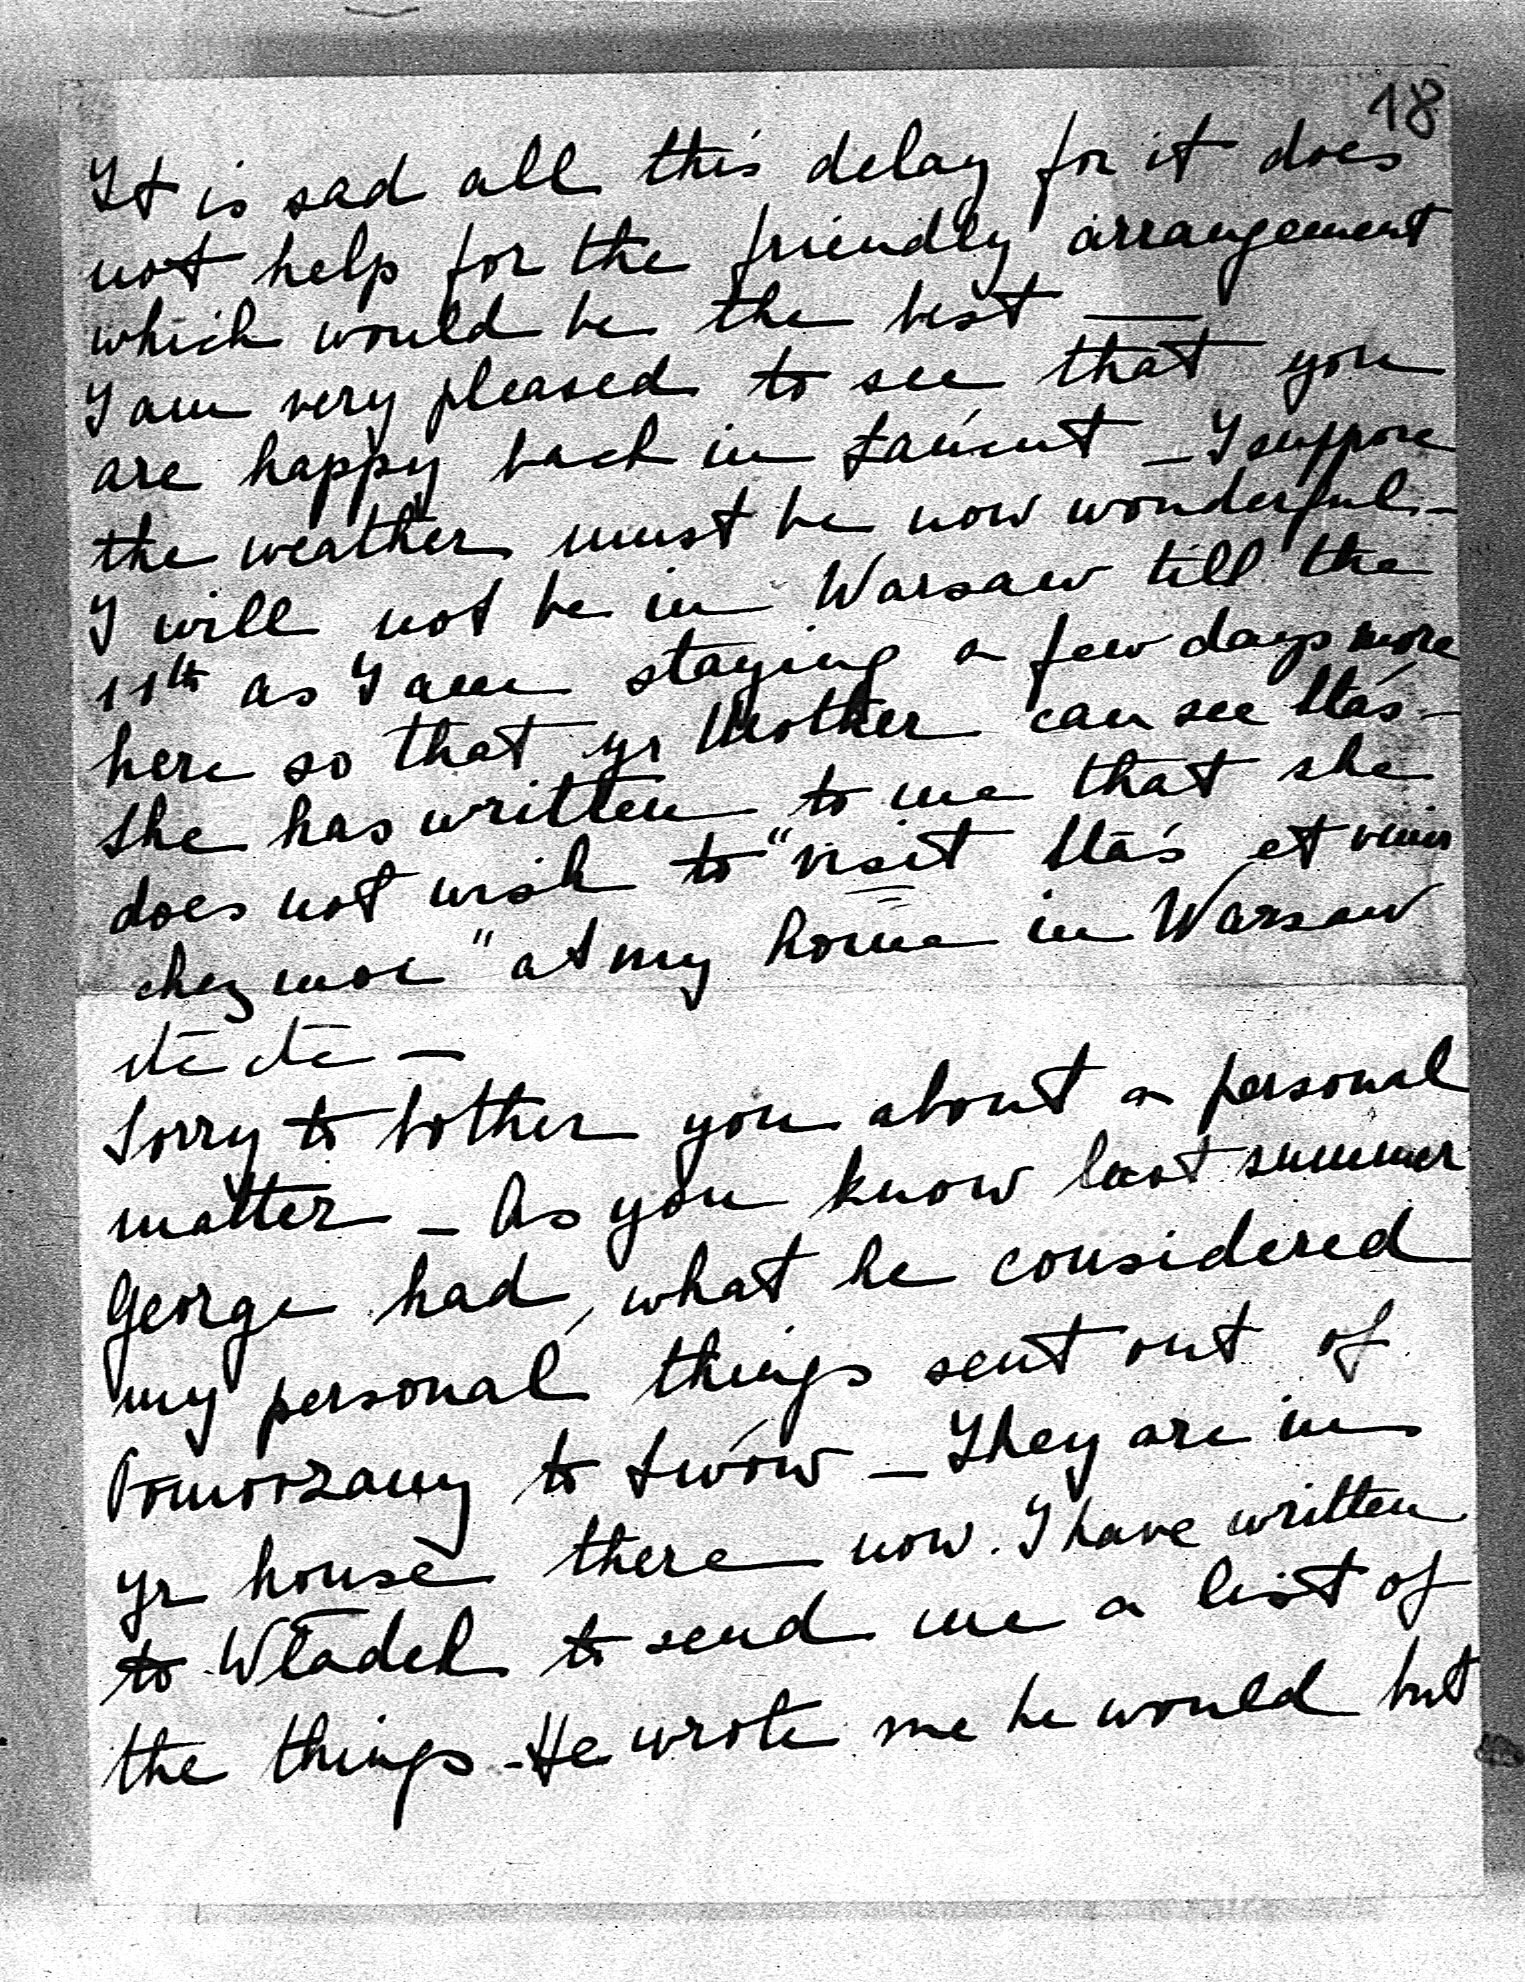 18
It is sad all this delay for it does
not help for the friendly arrangement
which would be the best —
I am very pleased to see that you
are happy back in Łańcut – I suppose
the weather must be now wonderful –
I will not be in Warsaw till the
11th as I am staying a few days more
here so that yr Mother can see Staś –
She has written to me that she
does not wish to "visit Staś et venir
chez moi" at my home in Warsaw
etc etc –
Sorry to bother you about a personal
matter – As you know last summer
George had, what he considered
my personal things sent out of
Pomorzany to Lwów – They are in
yr house there now. I have written
to Władek to send me a list of
the things – He wrote me he would but